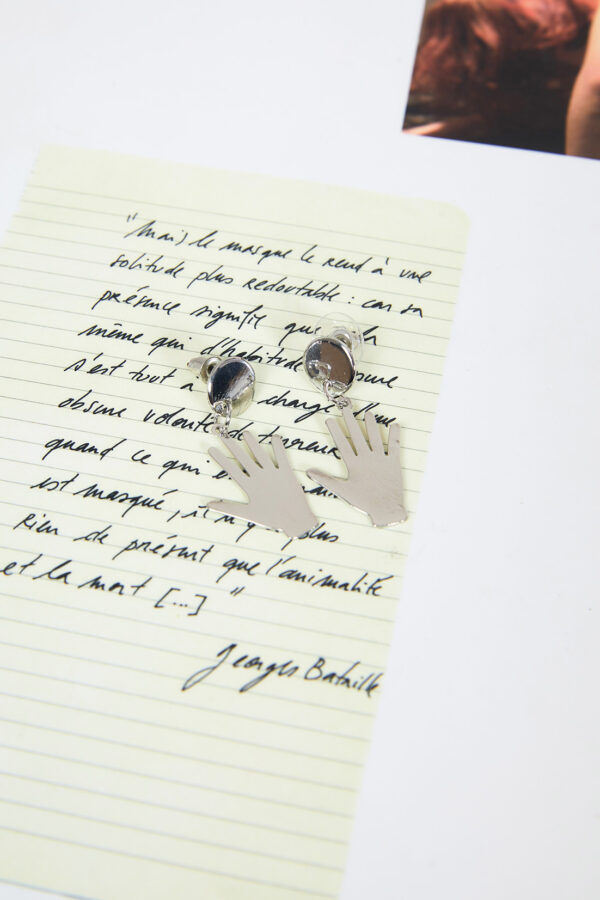 "mais le masque le rend à une
solitude plus redoutable : car sa
présence signifie que la
même qui d'habitude
s'est tout à charge d'une
obscure volonté de terreur
quand ce qui
est masqué, il n'y plus
rien de présent que l'animalité
et la mort [...]"
Georges Bataille